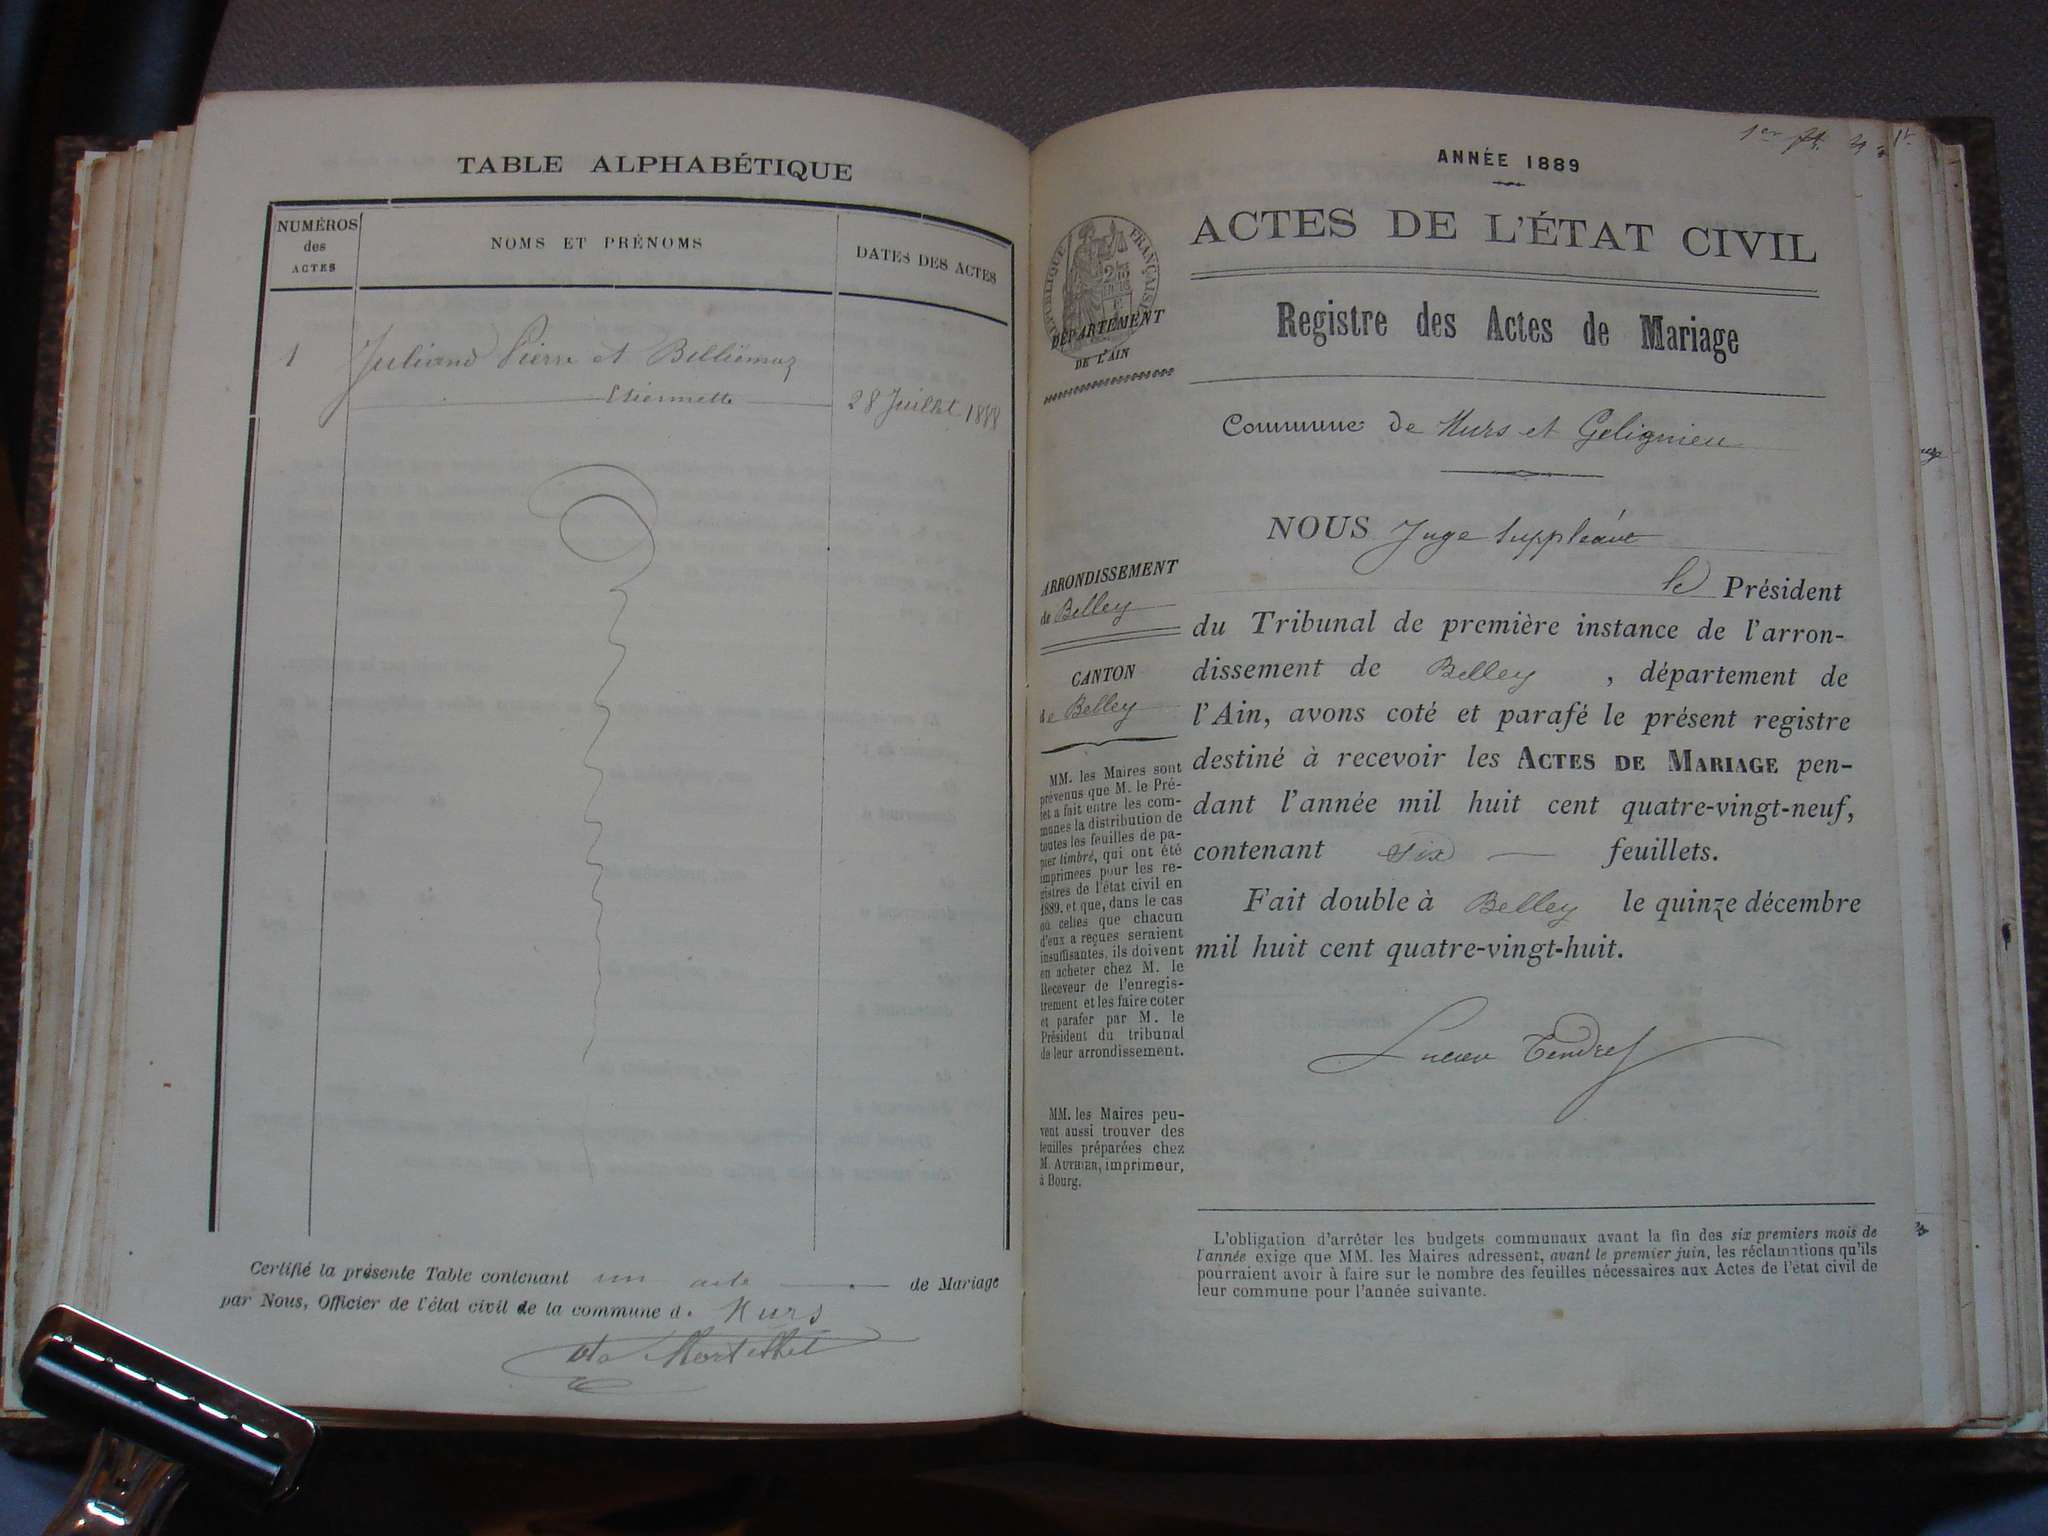 TABLE ALPHABÉTIQUE
NUMÉROS
des
ACTES
NOMS ET PRÉNOMS
DATES DES ACTES
1 Juliand Pierre et Billiémaz
Etiennette 28 Juillet 1888
Certifié la présente Table contenant un acte de Mariage
par Nous, Officier de l'état civil de la commune d. Murs
1er
ANNÉE 1889
ACTES DE L'ÉTAT CIVIL
RÉPUBLIQUE FRANÇAISE
DÉPARTEMENT
DE L'AIN
Registre des Actes de Mariage
Commune de Murs et Gelignieu
NOUS Juge Suppléant
le Président
du Tribunal de première instance de l'arron-
dissement de Belley, département de
l'Ain, avons coté et parafé le présent registre
destiné à recevoir les ACTES DE MARIAGE pen-
dant l'année mil huit cent quatre-vingt-neuf,
contenant six feuillets.
Fait double à Belley le quinze décembre
mil huit cent quatre-vingt-huit.
Lucien Tendret
ARRONDISSEMENT
de Belley
CANTON
de Belley
MM. les Maires sont
prévenus que M. le Pré-
fet a fait entre les com-
munes la distribution de
toutes les feuilles de pa-
pier timbré, qui ont été
imprimées pour les re-
gistres de l'état civil en
1889, et que, dans le cas
où celles que chacun
d'eux a reçues seraient
insuffisantes, ils doivent
en acheter chez M. le
Receveur de l'enregis-
trement et les faire coter
et parafer par M. le
Président du tribunal
de leur arrondissement.
MM. les Maires peu-
vent aussi trouver des
feuilles préparées chez
M. AUTHIER, imprimeur,
à Bourg.
L'obligation d'arrêter les budgets communaux avant la fin des six premiers mois de
l'année exige que MM. les Maires adressent, avant le premier juin, les réclamations qu'ils
pourraient avoir à faire sur le nombre des feuilles nécessaires aux Actes de l'état civil de
leur commune pour l'année suivante.